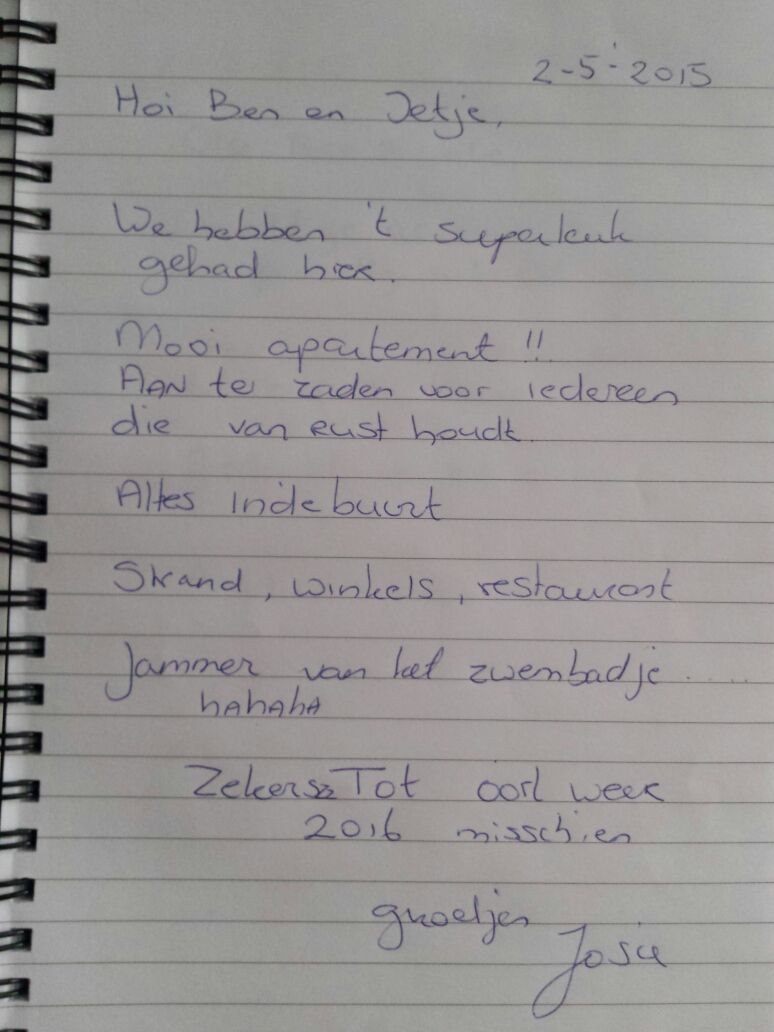 2-5-2015
Hoi Ben en Jetje,
We hebben 't superleuk
gehad hier.
Mooi apartement!!
AAN te raden voor iedereen
die van rust houdt.
Alles in de buurt
Strand, winkels, restaurant
Jammer van het zwembadje.....
hAhAhA
Tot weer
2016 misschien
groetjes
Josie